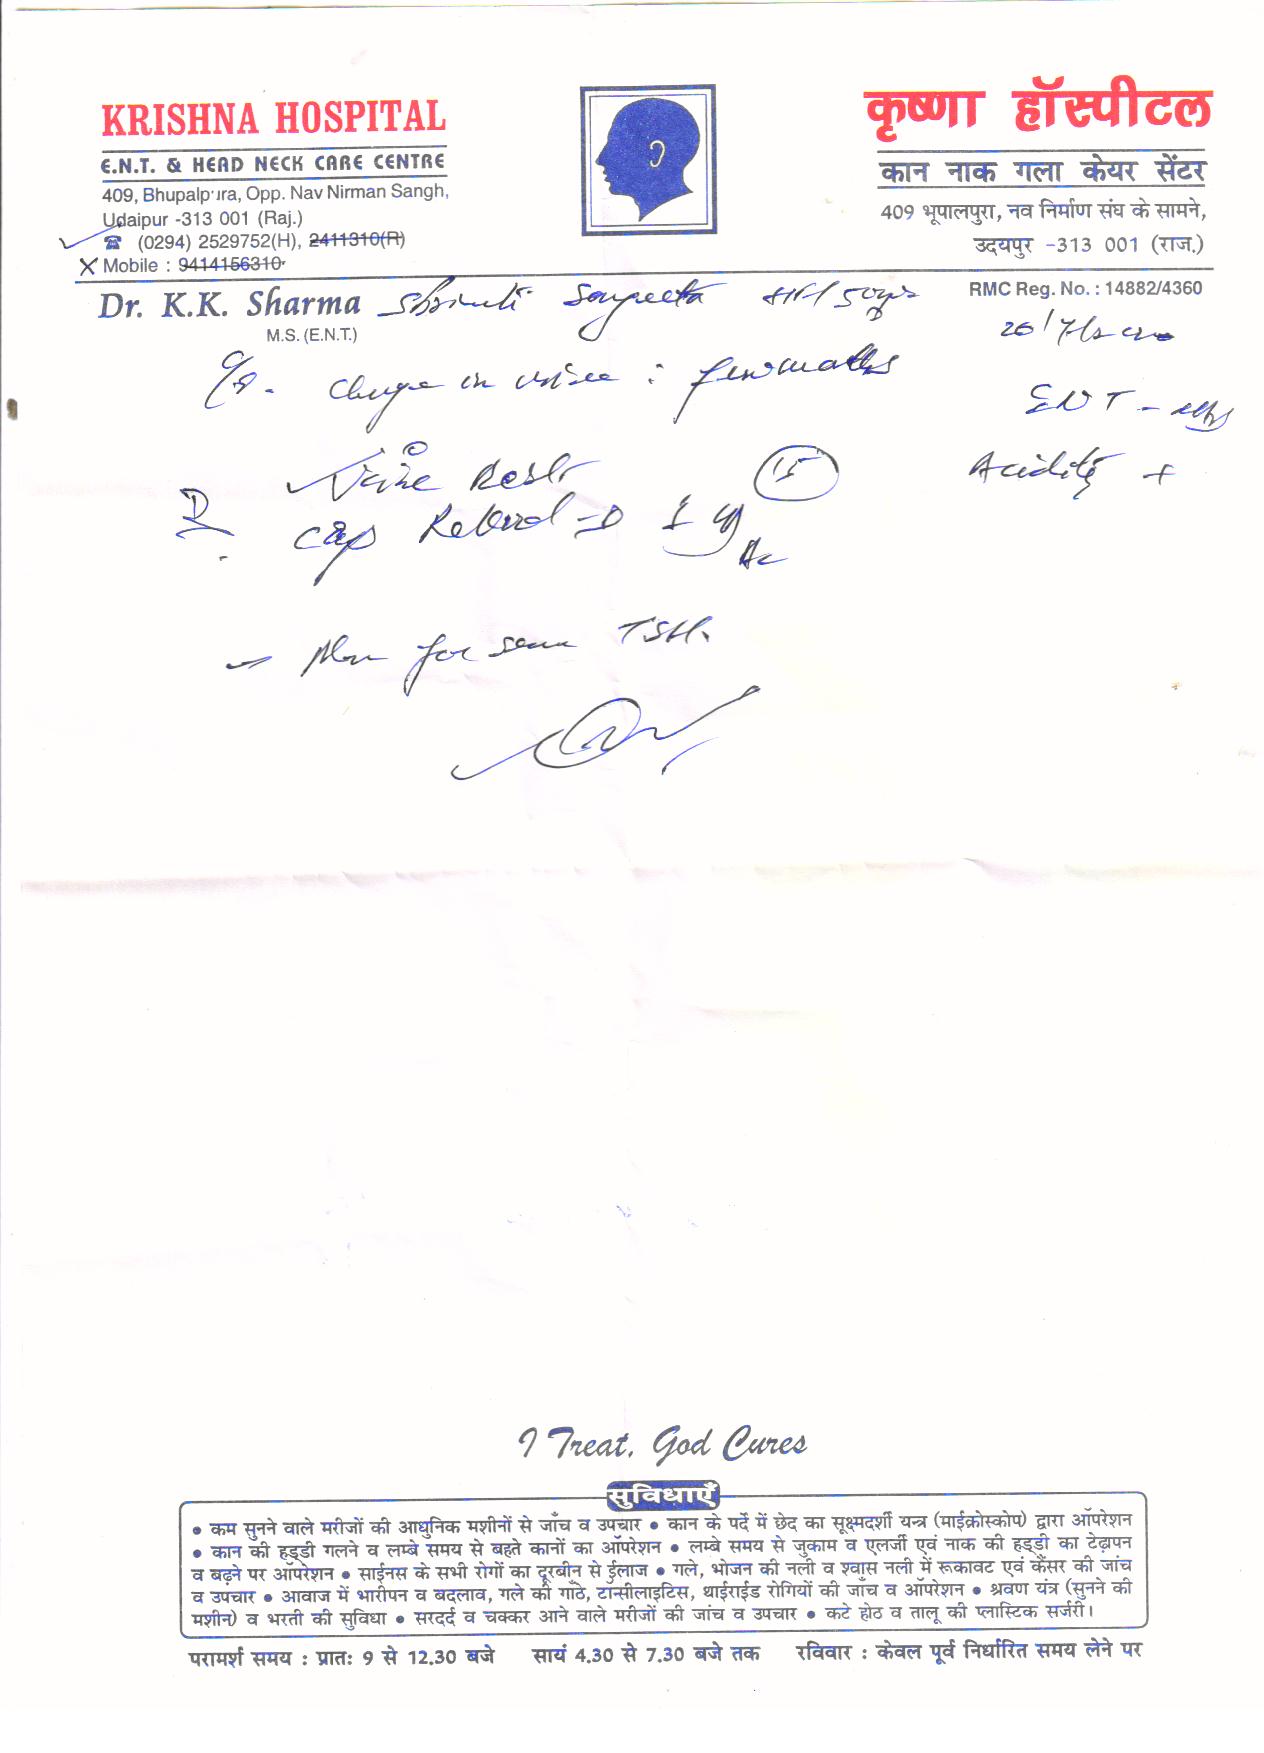 KRISHNA HOSPITAL
E.N.T. & HEAD NECK CARE CENTRE
409, Bhupalpura, Opp. Nav Nirman Sangh,
Udaipur -313 001 (Raj.)
☎ (0294) 2529752(H), 2411310(R)
Mobile : 9414156310
कृष्णा हॉस्पीटल
कान नाक गला केयर सेंटर
409 भूपालपुरा, नव निर्माण संघ के सामने,
उदयपुर -313 001 (राज.)
Dr. K.K. Sharma
M.S. (E.N.T.)
RMC Reg. No. : 14882/4360
C/o. change in voice :
ENT -
Acidity +
Voice Rest
15
Cap
for TSH.
I Treat, God Cures
सुविधाएँ
• कम सुनने वाले मरीजों की आधुनिक मशीनों से जाँच व उपचार • कान के पर्दे में छेद का सूक्ष्मदर्शी यन्त्र (माईक्रोस्कोप) द्वारा ऑपरेशन
• कान की हड्डी गलने व लम्बे समय से बहते कानों का ऑपरेशन • लम्बे समय से जुकाम व एलर्जी एवं नाक की हड्डी का टेढ़ापन
व बढ़ने पर ऑपरेशन • साईनस के सभी रोगों का दूरबीन से ईलाज • गले, भोजन की नली व श्वास नली में रूकावट एवं कैंसर की जांच
व उपचार • आवाज में भारीपन व बदलाव, गले की गाँठे, टॉन्सीलाइटिस, थाईराईड रोगियों की जाँच व ऑपरेशन • श्रवण यंत्र (सुनने की
मशीन) व भरती की सुविधा • सरदर्द व चक्कर आने वाले मरीजों की जांच व उपचार • कटे होठ व तालू की प्लास्टिक सर्जरी।
परामर्श समय : प्रातः 9 से 12.30 बजे सायं 4.30 से 7.30 बजे तक रविवार : केवल पूर्व निर्धारित समय लेने पर